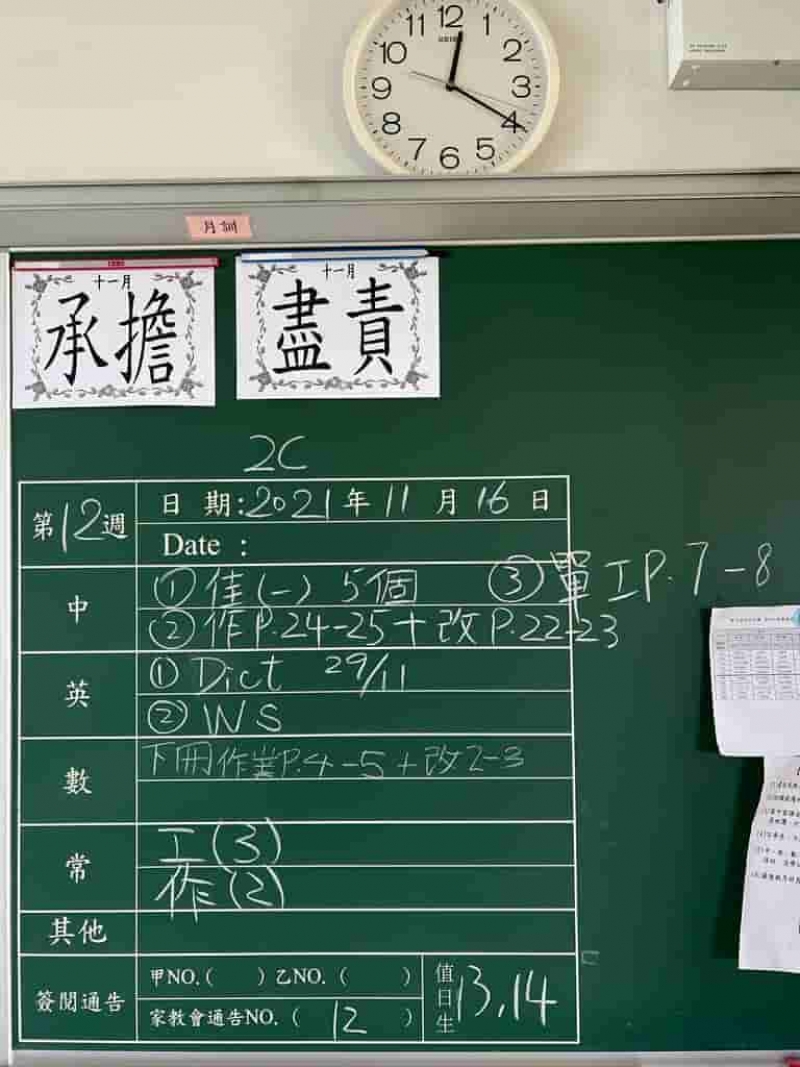 12
11 1
10 2
9 3
8 4
7 5
6
月訓
十一月
承擔
十一月
盡責
2C
第12週
日期:2021年11月16日
Date :
中
①佳(一) 5個 ③單工P.7-8
②作P.24-25+改P.22-23
英
①Dict 29/11
②WS
數
下冊作業P.4-5+改2-3
常
工(3)
作(2)
其他
簽閱通告
甲NO.( ) 乙NO.( )
家教會通告NO.( 12 )
值日生
13,14